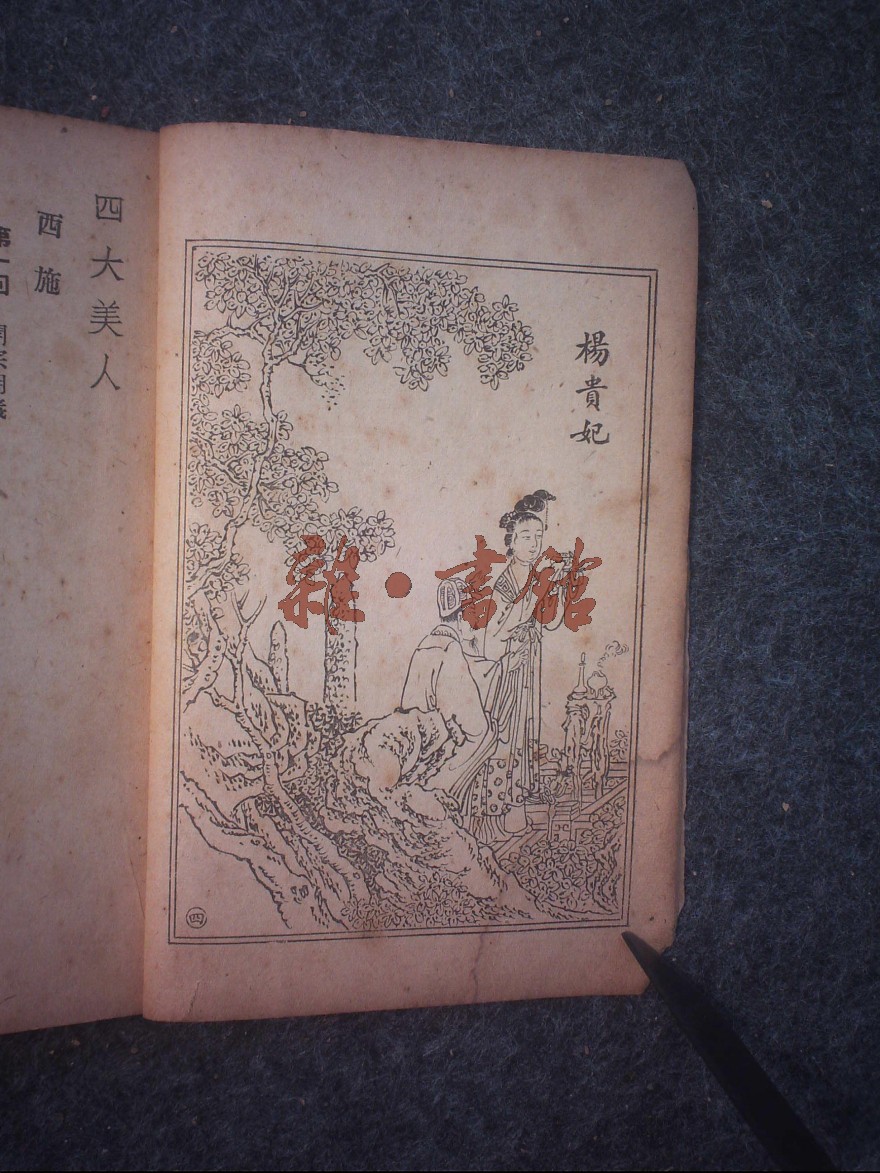 楊貴妃
四
四大美人
西施
第一回 開宗明義
雜·書館